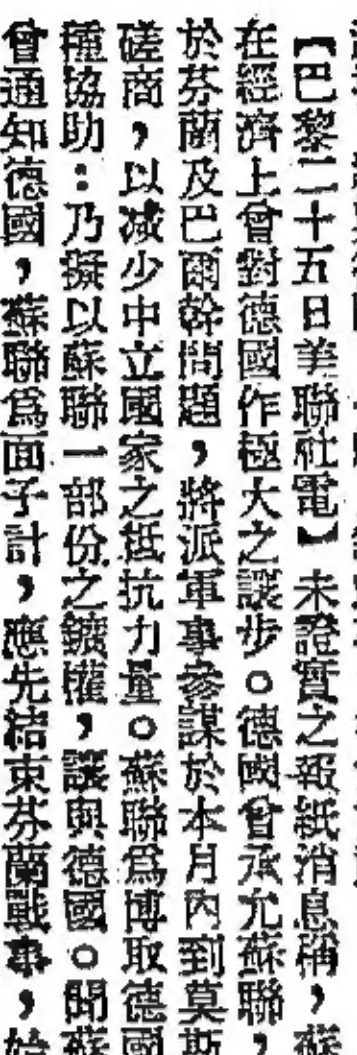 【巴黎二十五日美聯社電】未證實之報紙消息稱，蘇
在經濟上會對德國作極大之讓步。德國曾承允蘇聯，
於芬蘭及巴爾幹問題，將派軍事參謀於本月內到莫斯
磋商，以减少中立國家之抵抗力量。蘇聯爲博取德國
種協助：乃擬以蘇聯一部份之鑛權，讓與德國。聞蘇
曾通知德國，蘇聯爲面子計，應先結束芬蘭戰事，始